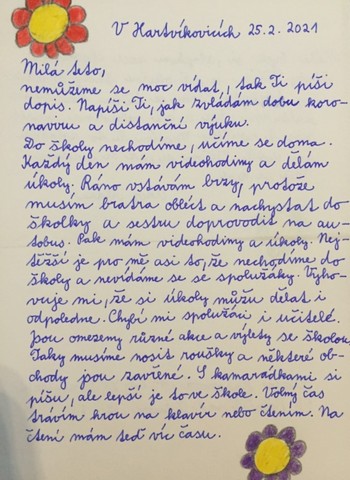 V Hartvíkovicích 25.2.2021
Milá teto,
nemůžeme se moc vídat, tak Ti píši
dopis. Napíši Ti, jak zvládám dobu koro-
naviru a distanční výuku.
Do školy nechodíme, učíme se doma.
Každý den mám videohodiny a dělám
úkoly. Ráno vstávám brzy, protože
musím bratra obléct a nachystat do
školky a sestru doprovodit na au-
tobus. Pak mám videohodiny a úkoly. Nej-
těžší je pro mě asi to, že nechodíme do
školy a nevídáme se se spolužáky. Vyho-
vuje mi, že si úkoly můžu dělat i
odpoledne. Chybí mi spolužáci i učitelé.
Jsou omezeny různé akce a výlety se školou.
Taky musíme nosit roušky a některé ob-
chody jsou zavřené. S kamarádkami si
píšu, ale lepší je to ve škole. Volný čas
trávím hrou na klavír nebo čtením. Na
čtení mám teď víc času.